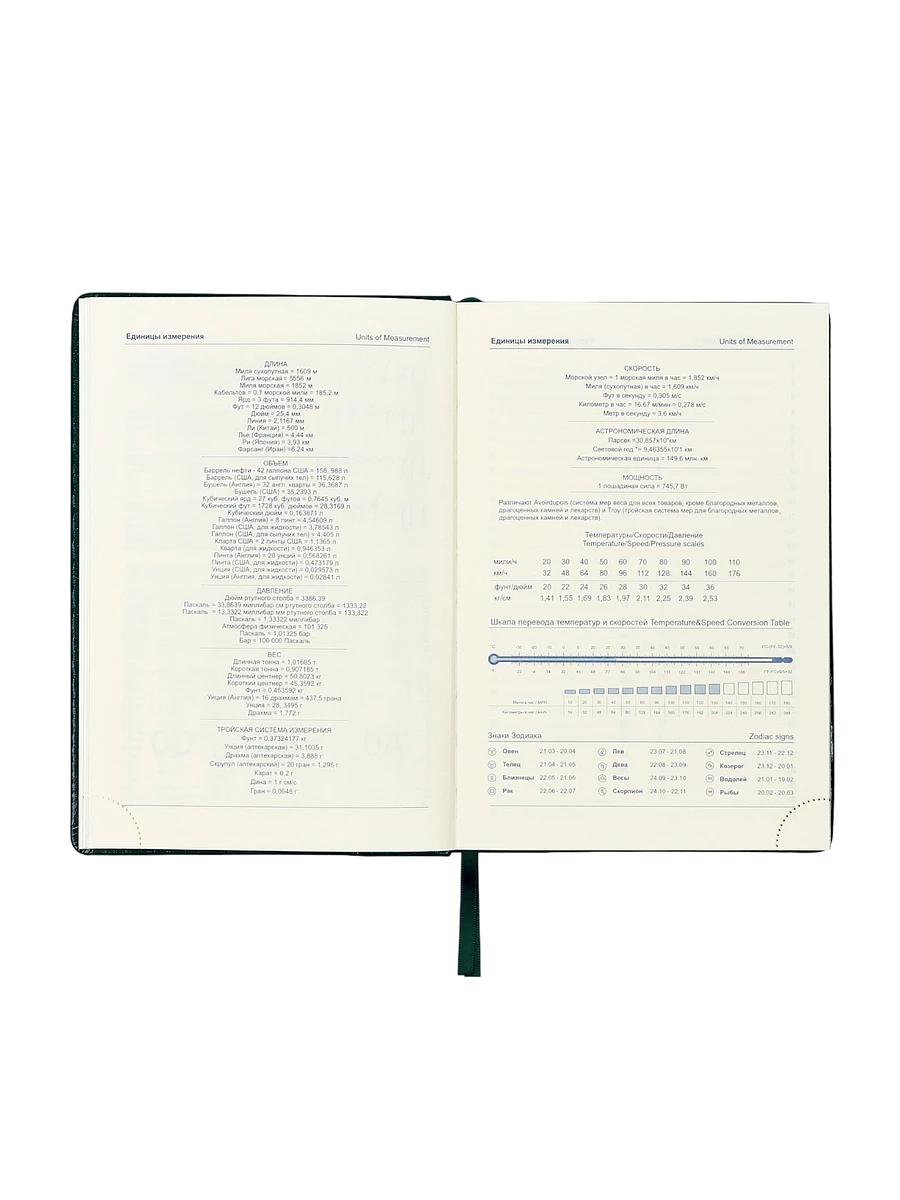 Единицы измерения Units of Measurement
ДЛИНА
Миля сухопутная = 1609 м
Лига морская = 5556 м
Миля морская = 1852 м
Кабельтов = 0,1 морской мили = 185,2 м
Ярд = 3 фута = 914,4 мм
Фут = 12 дюймов = 0,3048 м
Дюйм = 25,4 мм
Линия = 2,1167 мм
Ли (Китай) = 500 м
Лье (Франция) = 4,44 км
Ри (Япония) = 3,93 км
Фарсанг (Иран) =6,24 км
ОБЪЕМ
Баррель нефти - 42 галлона США = 158, 988 л
Баррель (США, для сыпучих тел) = 115,628 л
Бушель (Англия) = 32 англ. кварты = 36,3687 л
Бушель (США) = 35,2393 л
Кубический ярд = 27 куб. футов = 0,7645 куб. м
Кубический фут = 1728 куб. дюймов = 28,3169 л
Кубический дюйм = 0,163871 л
Галлон (Англия) = 8 пинт = 4,54609 л
Галлон (США, для жидкости) = 3,78543 л
Галлон (США, для сыпучих тел) = 4,405 л
Кларта США = 2 пинты США = 1,1365 л
Кварта (для жидкости) = 0,946353 л
Пинта (Англия) = 20 унций = 0,568261 л
Пинта (США, для жидкости) = 0,473179 л
Унция (США, для жидкости) = 0,029573 л
Унция (Англия, для жидкости) = 0,02841 л
ДАВЛЕНИЕ
Дюйм ртутного столба = 3386,39
Паскаль = 33,8639 миллибар см ртутного столба = 1333,22
Паскаль = 13,3322 миллибар мм ртутного столба = 133,322
Паскаль = 1,33322 миллибар
Атмосфера физическая = 101 325
Паскаль = 1,01325 бар
Бар = 100 000 Паскаль
ВЕС
Длинная тонна = 1,01605 т
Короткая тонна = 0,907185 т
Длинный центнер = 50,8023 кг
Короткий центнер = 45,3592 кг
Фунт = 0,453592 кг
Унция (Англия) = 16 драхмам = 437,5 грана
Унция = 28, 3495 г
Драхма = 1,772 г
ТРОЙСКАЯ СИСТЕМА ИЗМЕРЕНИЯ
Фунт = 0,37324177 кг
Унция (аптекарская) = 31,1035 г
Драхма (аптекарская) = 3,888 г
Скрупул (аптекарский) = 20 гран = 1,296 г
Карат = 0,2 г
Дина = 1 г см/с
Гран = 0,0648 г
Единицы измерения Units of Measurement
СКОРОСТЬ
Морской узел = 1 морская миля в час = 1,852 км/ч
Миля (сухопутная) в час = 1,609 км/ч
Фут в секунду = 0,305 м/с
Километр в час = 16,67 м/мин = 0,278 м/с
Метр в секунду = 3,6 км/ч
АСТРОНОМИЧЕСКАЯ ДЛИНА
Парсек =30,857x10"км
Световой год "= 9,46355x10"1 км
Астрономическая единица = 149,6 млн. км
МОЩНОСТЬ
1 лошадиная сила = 745,7 Вт
Различают Avoirdupois (система мер веса для всех товаров, кроме благородных металлов,
драгоценных камней и лекарств) и Troy (тройская система мер для благородных металлов,
драгоценных камней и лекарств).
Температуры/Скорости/Давление
Temperature/Speed/Pressure scales
мили/ч 20 30 40 50 60 70 80 90 100 110
км/ч 32 48 64 80 96 112 128 144 160 176
фунт/дюйм 20 22 24 26 28 30 32 34 36
кг/см 1,41 1,55 1,69 1,83 1,97 2,11 2,25 2,39 2,53
Шкала перевода температур и скоростей Temperature&Speed Conversion Table
Мили в час / MPH
Километры в час / km/h
Знаки Зодиака Zodiac signs
Овен 21.03 - 20.04 Лев 23.07 - 21.08 Стрелец 23.11 - 22.12
Телец 21.04 - 21.05 Дева 22.08 - 23.09 Козерог 23.12 - 20.01
Близнецы 22.05 - 21.06 Весы 24.09 - 23.10 Водолей 21.01 - 19.02
Рак 22.06 - 22.07 Скорпион 24.10 - 22.11 Рыбы 20.02 - 20.03